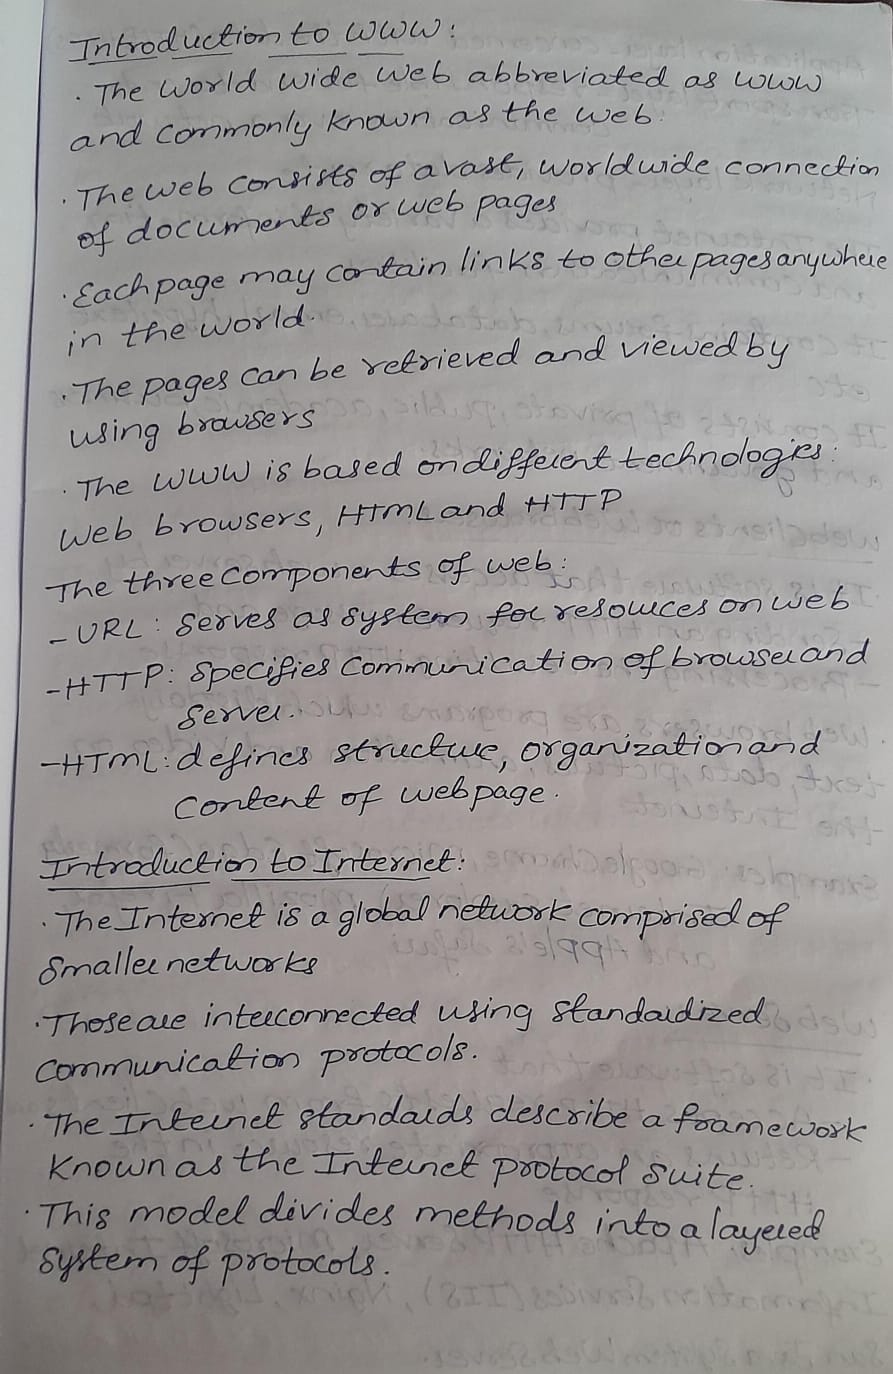 Introduction to WWW:
. The World Wide Web abbreviated as WWW
and commonly known as the web.
. The web consists of a vast, worldwide connection
of documents or web pages
. Each page may contain links to other pages anywhere
in the world.
. The pages can be retrieved and viewed by
using browsers
. The WWW is based on different technologies:
Web browsers, HTML and HTTP
The three components of web:
- URL: Serves as system for resources on web
- HTTP: Specifies communication of browser and
Server.
- HTML: defines structure, organization and
Content of webpage.
Introduction to Internet:
. The Internet is a global network comprised of
Smaller networks
. Those are interconnected using standardized
Communication protocols.
. The Internet standards describe a framework
Known as the Internet protocol Suite.
. This model divides methods into a layered
System of protocols.